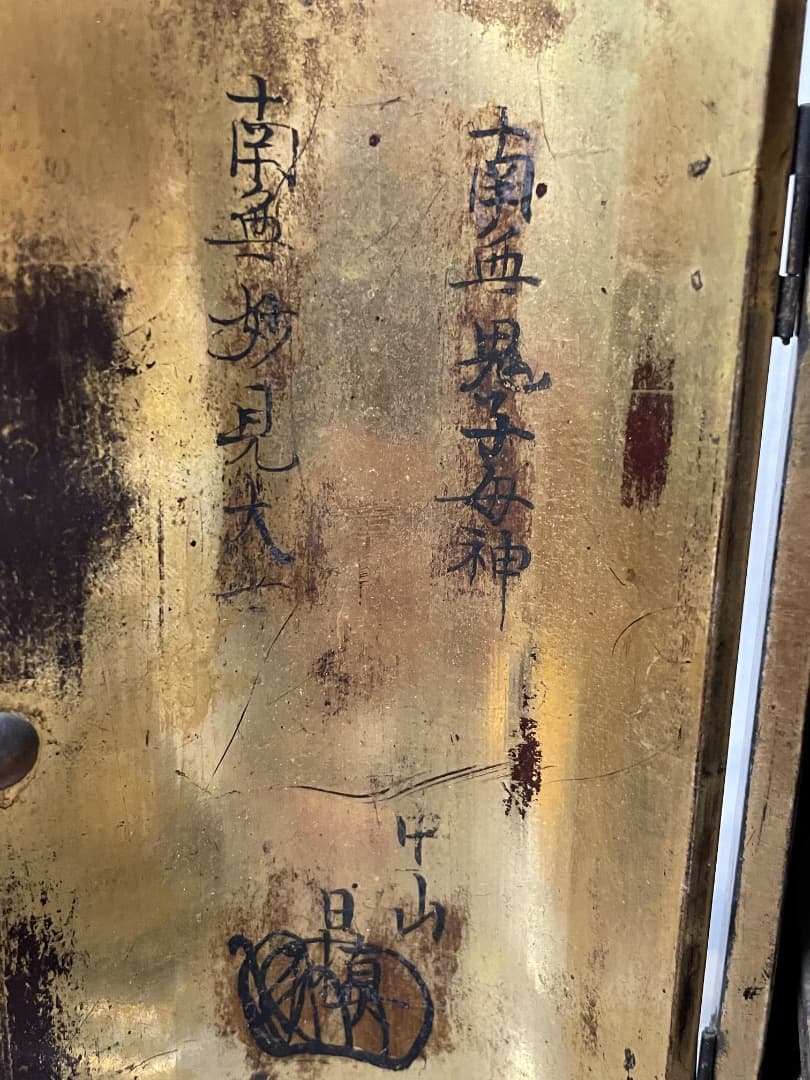 南無鬼子母神
南無妙見大士
中山
日